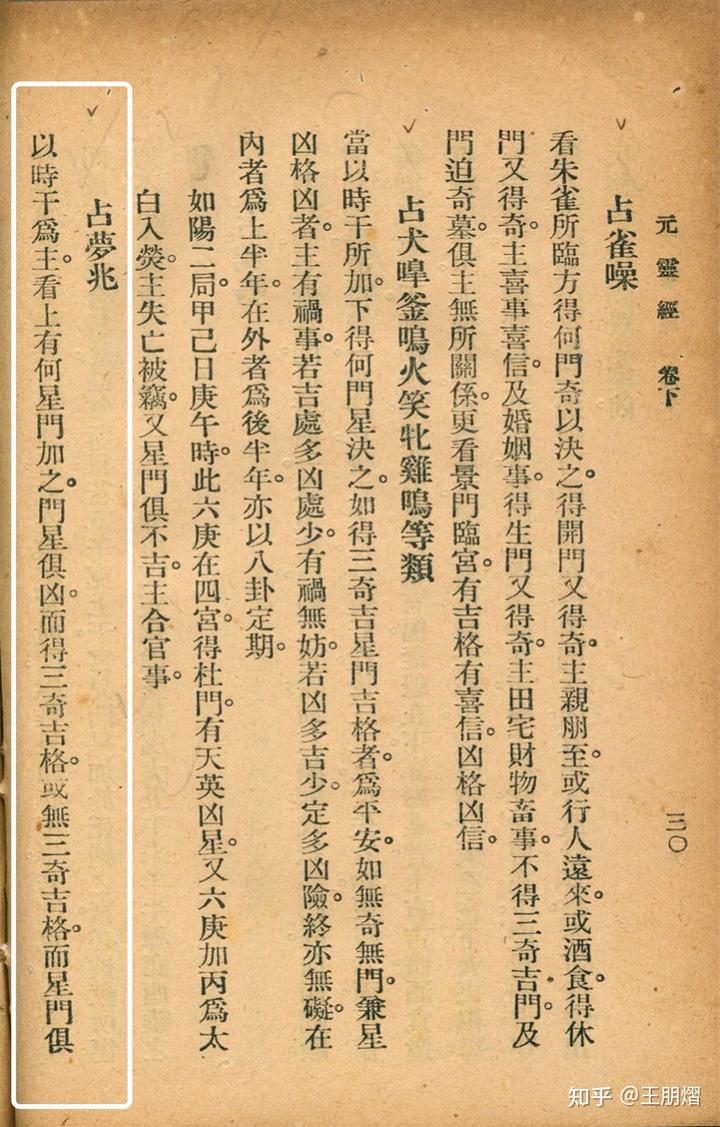 元靈經 卷下
三〇
占雀噪
看朱雀所臨方得何門奇以決之。得開門又得奇。主親朋至。或行人遠來。或酒食。得休
門又得奇。主喜事喜信。及婚姻事。得生門又得奇。主田宅財物畜事。不得三奇吉門。及
門迫奇墓。俱主無所關係。更看景門臨宮。有吉格有喜信。凶格凶信。
占犬嘷釜鳴火笑牝雞鳴等類
當以時干所加。下得何門星決之。如得三奇吉星門吉格者。爲平安。如無奇無門。兼星
凶格凶者。主有禍事。若吉處多凶處少。有禍無妨。若凶多吉少。定多凶險。終亦無礙。在
內者爲上半年。在外者爲後半年。亦以八卦定期。
如陽二局。甲己日庚午時。此六庚在四宮。得杜門。有天英凶星。又六庚加丙爲太
白入熒。主失亡被竊。又星門俱不吉。主合官事。
占夢兆
以時干爲主。看上有何星門加之。門星俱凶。而得三奇吉格。或無三奇吉格。而星門俱
知乎 @王朋熠